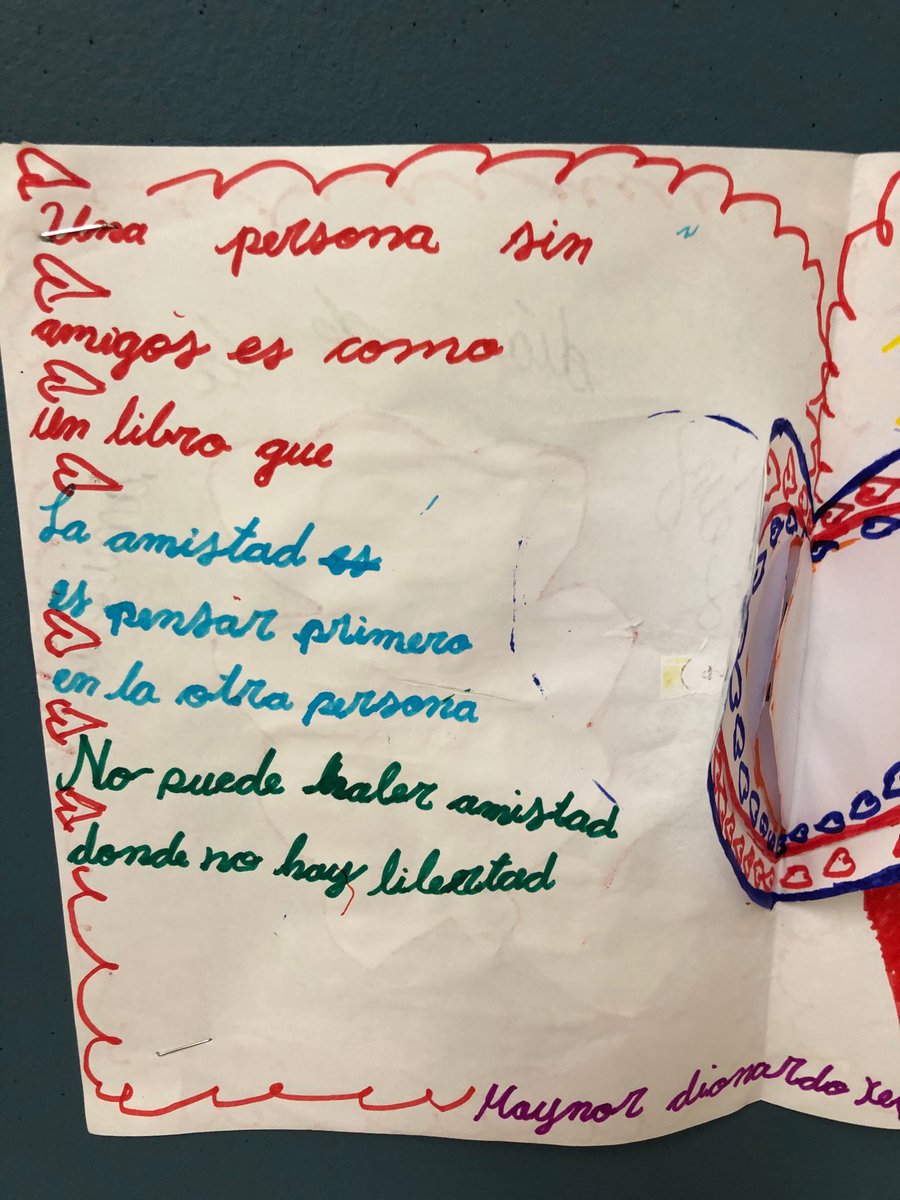 Una persona sin
amigos es como
un libro que
La amistad es
es pensar primero
en la otra persona
No puede haber amistad
donde no hay libertad
Maynor dionardo